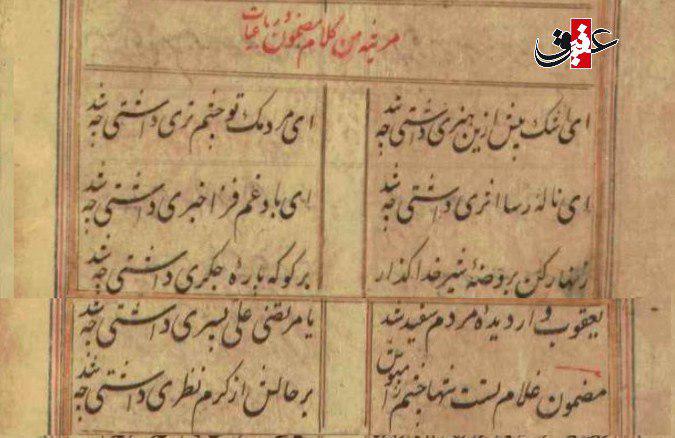 عقیق
مرثیه من کلام مضمون و رباعیات
ای اشک پیش ازین هنری داشتی چه شد ای مردمک تو چشم تری داشتی چه شد
ای نالهٔ رسا اثری داشتی چه شد ای باد غم فزا خبری داشتی چه شد
زنهار کن بروضهٔ شیر خدا گذار برکو که بارهٔ جکری داشتی چه شد
یعقوب وار دیدهٔ مردم سفید شد یا مرتضی علی پسری داشتی چه شد
مضمون غلام تست شها چشم مپوش بر حالش از کرم نظری داشتی چه شد